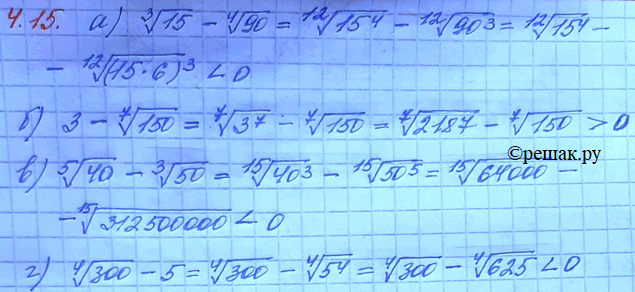 4.15. а) ∛15 − ∜90 = ¹²√15⁴ − ¹²√90³ = ¹²√15⁴ −
− ¹²√(15·6)³ < 0
б) 3 − ⁷√150 = ⁷√3⁷ − ⁷√150 = ⁷√2187 − ⁷√150 > 0
©решак.ру
в) ⁵√40 − ³√50 = ¹⁵√40³ − ¹⁵√50⁵ = ¹⁵√64000 −
− ¹⁵√312500000 < 0
г) ⁴√300 − 5 = ⁴√300 − ⁴√5⁴ = ⁴√300 − ⁴√625 < 0